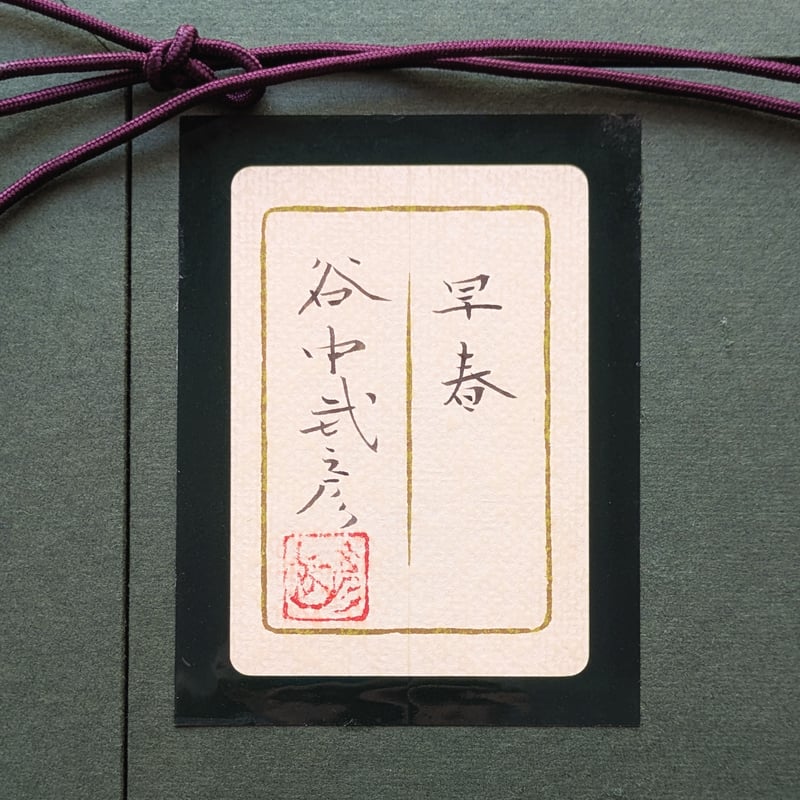 早春
谷中武彦